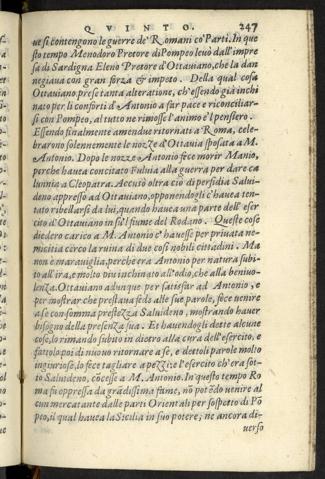 QVINTO. 247
ue si contengono le guerre de' Romani cō' Parti. In que
sto tempo Menodoro Pretore di Pompeo leuò dall'impre
sa di Sardigna Eleno Pretore d'Ottauiano, che la dan
negiaua con gran forza & impeto. Della qual cosa
Ottauiano prese tanta alteratione, ch'essendo già inchi
nato per li conforti d'Antonio a far pace e riconciliar-
si con Pompeo, al tutto ne rimosse l'animo e'l pensiero.
Essendo finalmente amendue ritornati a Roma, cele-
brarono solennemente le nozze d'Ottauia sposata a M.
Antonio. Dopo le nozze Antonio fece morir Manio,
perche hauea concitato Fuluia alla guerra per dare ca
lunnia a Cleopatra. Accusò oltra ciò di perfidia Salui-
deno appresso ad Ottauiano, opponendogli c'hauea ten-
tato ribellarsi da lui, quando hauea una parte dell'eser
cito d'Ottauiano in su'l fiume del Rodano. Queste cose
diedero carico a M. Antonio c'hauesse per priuata ne-
micitia cerco la ruina di due cosi nobili cittadini. Ma
non è marauiglia, perche era Antonio per natura subi-
to all'ira, e molto piu inchinato all'odio, che alla beniuo-
lenza. Ottauiano adunque per satisfar ad Antonio, e
per mostrar che prestaua fede alle sue parole, fece uenire
a se con somma prestezza Saluideno, mostrando hauer
bisogno della presenza sua. Et hauendogli dette alcune
cose, lo rimando subito in dietro alla cura dell'esercito, e
fattolo poi di nuouo ritornare a se, e dettoli parole molto
ingiuriose, lo fece tagliare a pezzi: e l'esercito ch'era sot-
to Saluideno, cōcesse a M. Antonio. In questo tempo Ro
ma fu oppressa da grādissima fame, nō potēdo uenire al
cun mercatante dalle parti Orientali per sospetto di Pō
peo, il qual haueua la Sicilia in suo potere; ne ancora di-
uerso